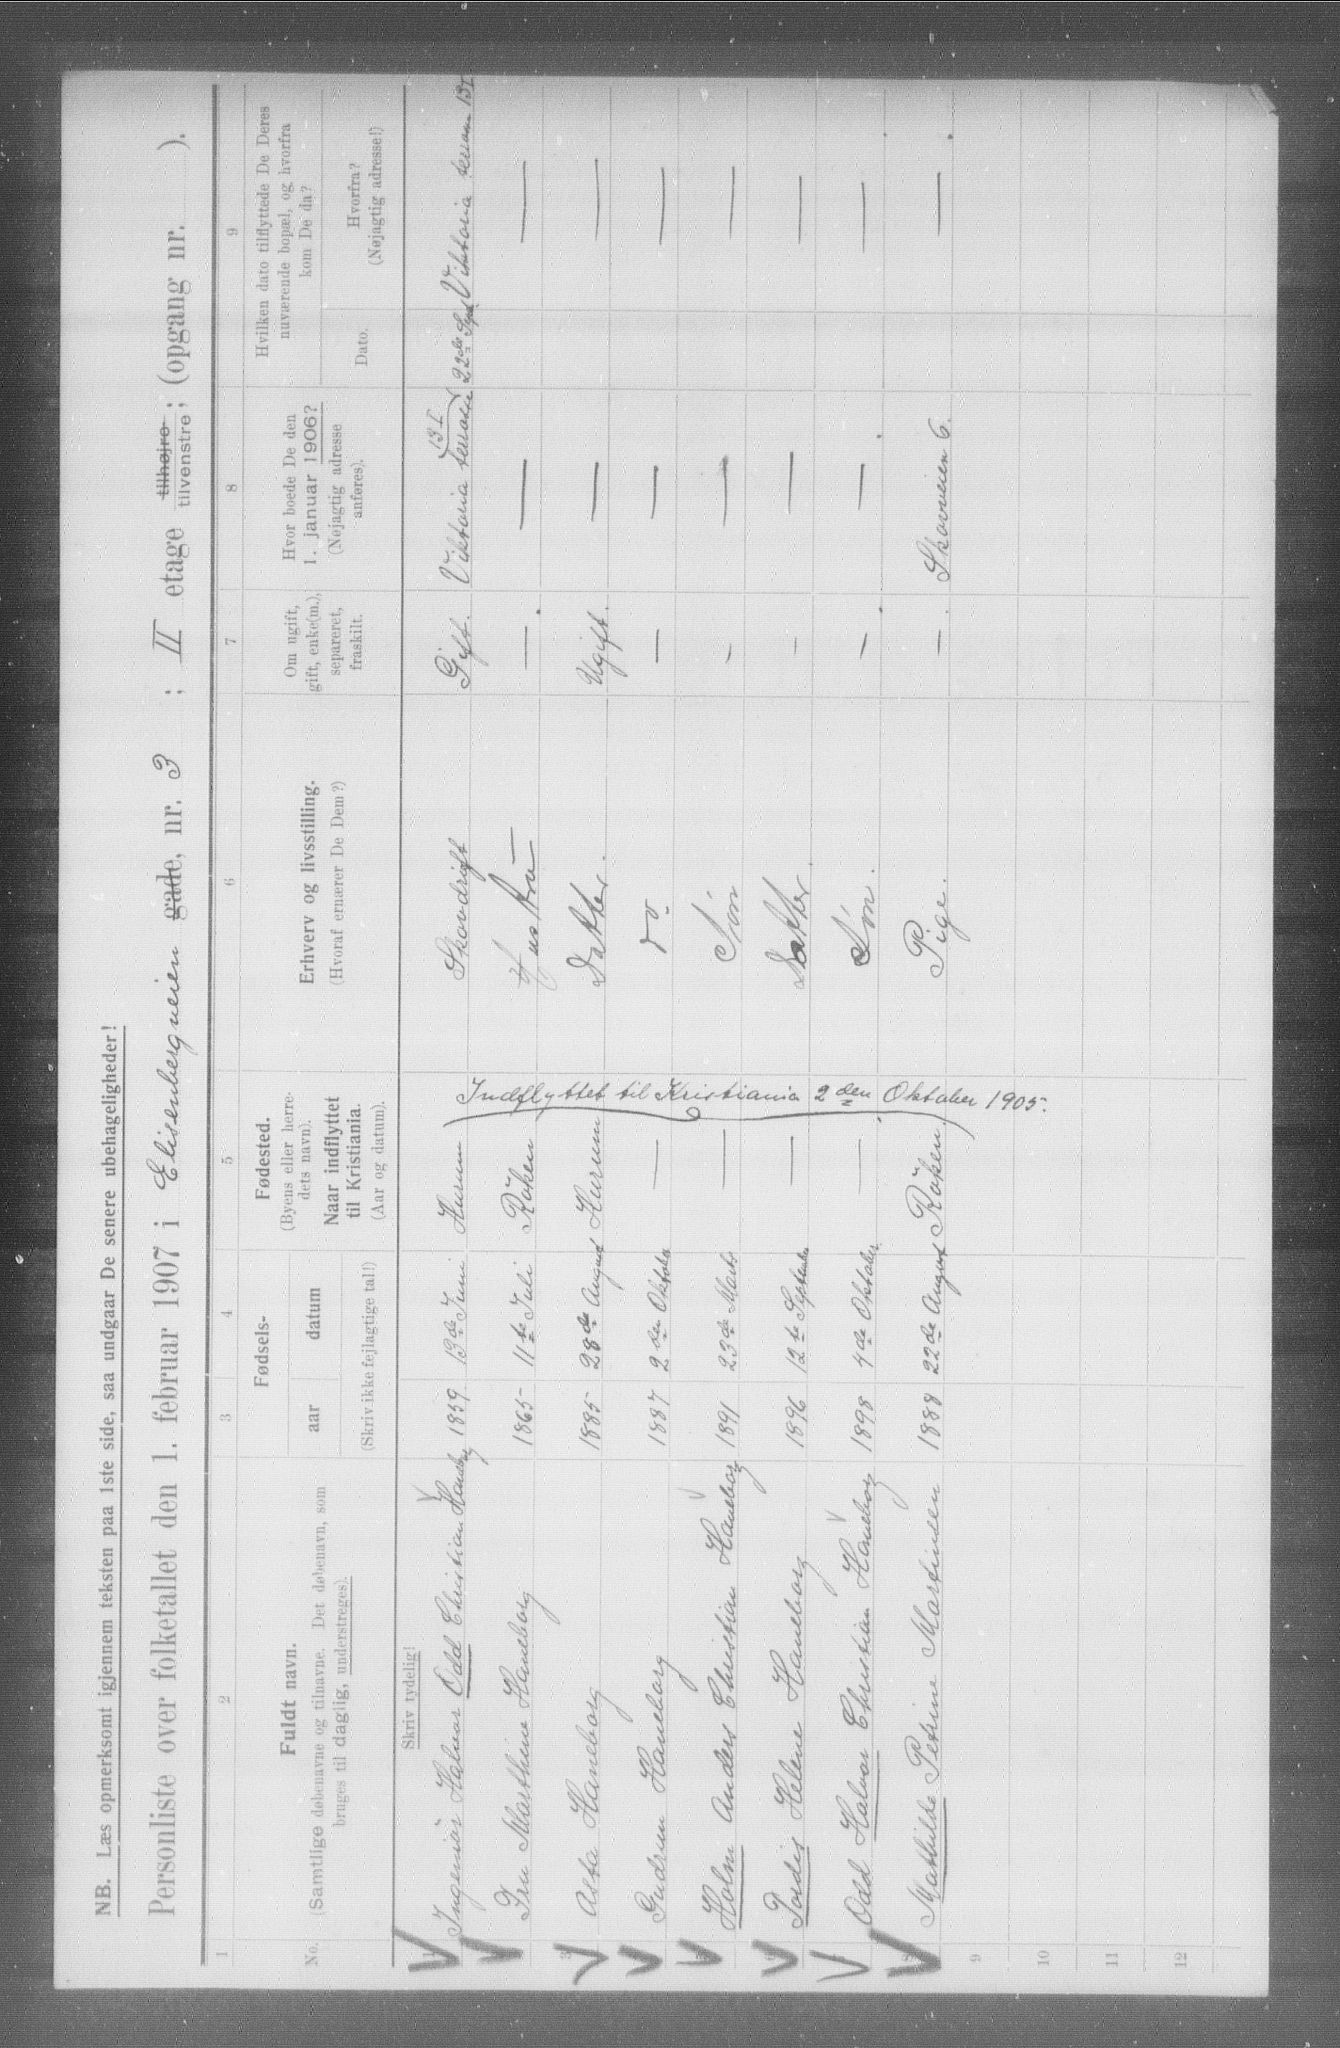 NB. Læs opmerksomt igjennem teksten paa 1ste side, saa undgaar De senere ubehageligheder!
Personliste over folketallet den 1. februar 1907 i Elisenbergveien gade, nr. 3 ; II etage tilhøjre tilvenstre; (opgang nr. ).
1 2 3 4 5 6 7 8 9
No. Fuldt navn. (Samtlige døbenavne og tilnavne. Det døbenavn, som bruges til daglig, understreges). Fødsels- aar datum (Skriv ikke fejlagtige tal!) Fødested. (Byens eller herredets navn). Naar indflyttet til Kristiania. (Aar og datum). Erhverv og livsstilling. (Hvoraf ernærer De Dem?) Om ugift, gift, enke(m.), separeret, fraskilt. Hvor boede De den 1. januar 1906? (Nøjagtig adresse anføres). Hvilken dato tilflyttede De Deres nuværende bopæl, og hvorfra kom De da? Dato. Hvorfra? (Nøjagtig adresse!)
Skriv tydelig!
1 Ingeniør Halvor Odd Christian Haneborg 1859 13de Juni Hurum Skovdrift Gift. Viktoria terrasse 13 I 22de Sept. Viktoria terrasse 13 I
Indflyttet til Kristiania 2den Oktober 1905.
2 Fru Marthine Haneborg 1865 11te Juli Röken Hustru — — —
3 Asta Haneborg 1885 28de August Hurum Datter. Ugift. — —
4 Gudrun Haneborg 1887 2den Oktober — do — — —
5 Holm Anders Christian Haneborg 1891 23de Marts — Sön — — —
6 Tordis Helene Haneborg 1896 12te September — Datter. — — —
7 Odd Halvor Christian Haneborg 1898 4de Oktober — Sön. — — —
8 Mathilde Petrine Martinsen 1888 22de August Röken. Pige. — Skovveien 6. —
9
10
11
12